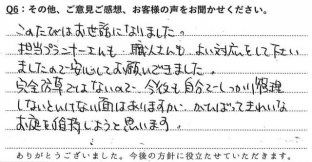 Q6：その他、ご意見ご感想、お客様の声をお聞かせください。
このたびはお世話になりました。
担当プランナーさんも、職人さんも、よい対応をして下さい
ましたので安心してお願いできました。
完全防草ではないので、今後も自分でしっかり管理
しないといけない面はありますが、がんばってきれいな
お庭を維持しようと思います。
ありがとうございました。今後の方針に役立たせていただきます。